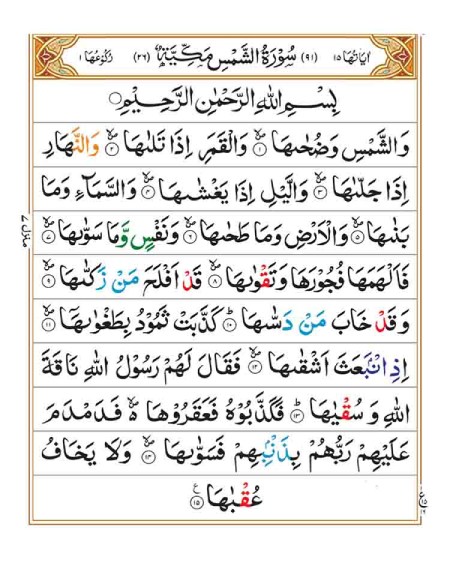 اٰيَاتُهَا ١٥ (٩١) سُوْرَةُ الشَّمْسِ مَكِّيَّةٌ (٢٦) رُكُوْعُهَا ١
بِسْمِ اللهِ الرَّحْمٰنِ الرَّحِيْمِ
وَالشَّمْسِ وَضُحٰىهَا ۝١ وَالْقَمَرِ اِذَا تَلٰىهَا ۝٢ وَالنَّهَارِ
اِذَا جَلّٰىهَا ۝٣ وَالَّيْلِ اِذَا يَغْشٰىهَا ۝٤ وَالسَّمَآءِ وَمَا
بَنٰىهَا ۝٥ وَالْاَرْضِ وَمَا طَحٰىهَا ۝٦ وَنَفْسٍ وَّمَا سَوّٰىهَا ۝٧
فَاَلْهَمَهَا فُجُوْرَهَا وَتَقْوٰىهَا ۝٨ قَدْ اَفْلَحَ مَنْ زَكّٰىهَا ۝٩
وَقَدْ خَابَ مَنْ دَسّٰىهَا ۝١٠ كَذَّبَتْ ثَمُوْدُ بِطَغْوٰىهَآ ۝١١
اِذِ انْۢبَعَثَ اَشْقٰىهَا ۝١٢ فَقَالَ لَهُمْ رَسُوْلُ اللهِ نَاقَةَ
اللهِ وَسُقْيٰهَا ۝١٣ فَكَذَّبُوْهُ فَعَقَرُوْهَا فَدَمْدَمَ
عَلَيْهِمْ رَبُّهُمْ بِذَنْۢبِهِمْ فَسَوّٰىهَا ۝١٤ وَلَا يَخَافُ
عُقْبٰهَا ۝١٥
منزل ٧